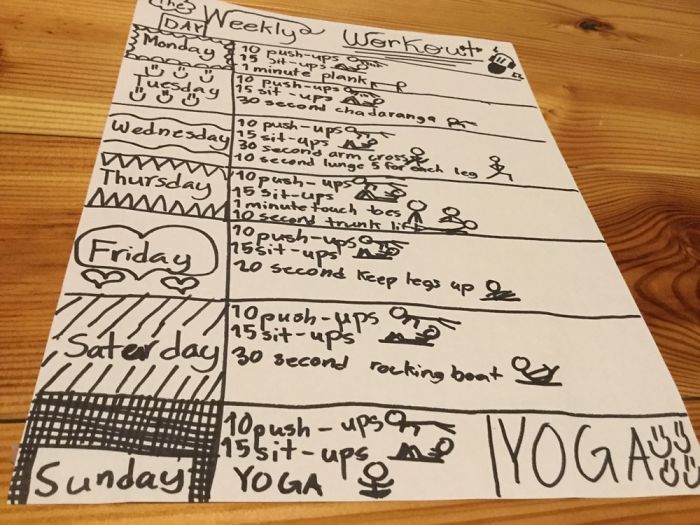 The Weekly Workout
DAY
Monday
10 push-ups
15 sit-ups
1 minute plank
Tuesday
10 push-ups
15 sit-ups
30 second chadaranga
Wednesday
10 push-ups
15 sit-ups
30 second arm cross
10 second lunge 5 for each leg
Thursday
10 push-ups
15 sit-ups
1 minute touch toes
10 second trunk lift
Friday
10 push-ups
15 sit-ups
20 second keep legs up
Saterday
10 push-ups
15 sit-ups
30 second rocking boat
Sunday
10 push-ups
15 sit-ups
YOGA
YOGA